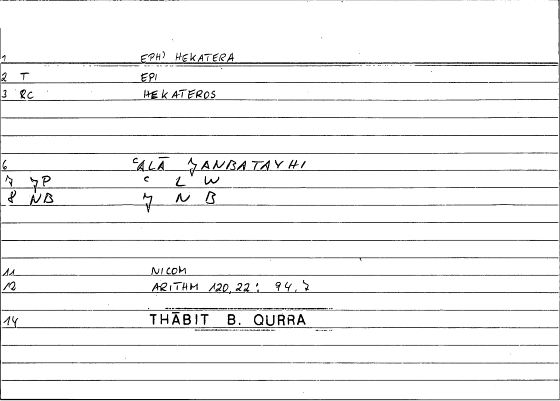 1 EPH' HEKATERA
2 T EPI
3 RC HEKATEROS
6 ʿALĀ ȜANBATAYHI
7 ȜP ʿ L W
8 NB Ȝ N B
11 NICOM
12 ARITHM 120,22: 94,7
14 THĀBIT B. QURRA